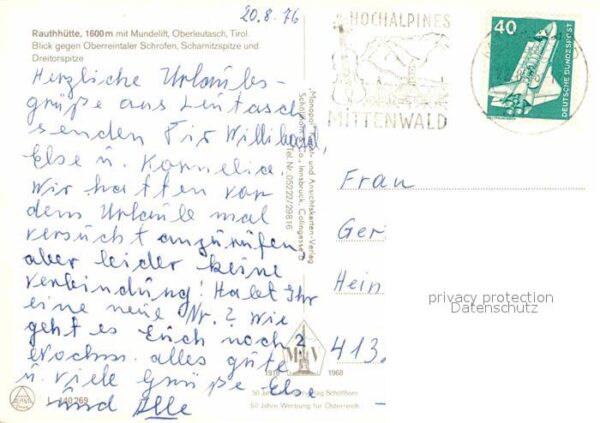 20.8.76
Rauthhütte, 1600 m mit Mundelift, Oberleutasch, Tirol.
Blick gegen Oberreintaler Schrofen, Scharnitzspitze und
Dreitorspitze
Herzliche Urlaubs-
grüße aus Leutasch
senden Dir Willibald,
Else u. Kornelia.
Wir hatten vor
dem Urlaub mal
versucht anzurufen
aber leider keine
Verbindung! Habt Ihr
eine neue Nr.? Wie
geht es Euch noch?
Nochm. alles gute
u. viele Grüße Else
und Alle
L 140269
Monopol Verlag und Ansichtskarten-Verlag
Schöllhorn & Co., Innsbruck, Colingasse
Tel. Nr. 05222/29816
1918 1968
50 Jahre Verlag Schöllhorn
50 Jahre Werbung für Österreich
HOCHALPINES
MITTENWALD
40
DEUTSCHE BUNDESPOST
Frau
Ger
Hein
413
privacy protection
Datenschutz